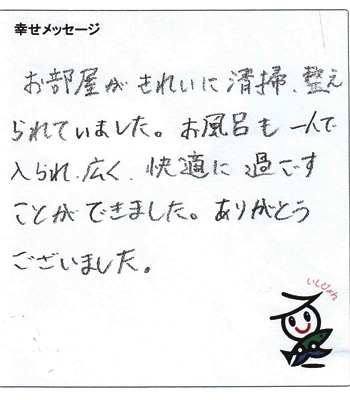 幸せメッセージ
お部屋がきれいに清掃、整え
られていました。お風呂も一人で
入られ、広く、快適に過ごす
ことができました。ありがとう
ございました。
いしぴょん